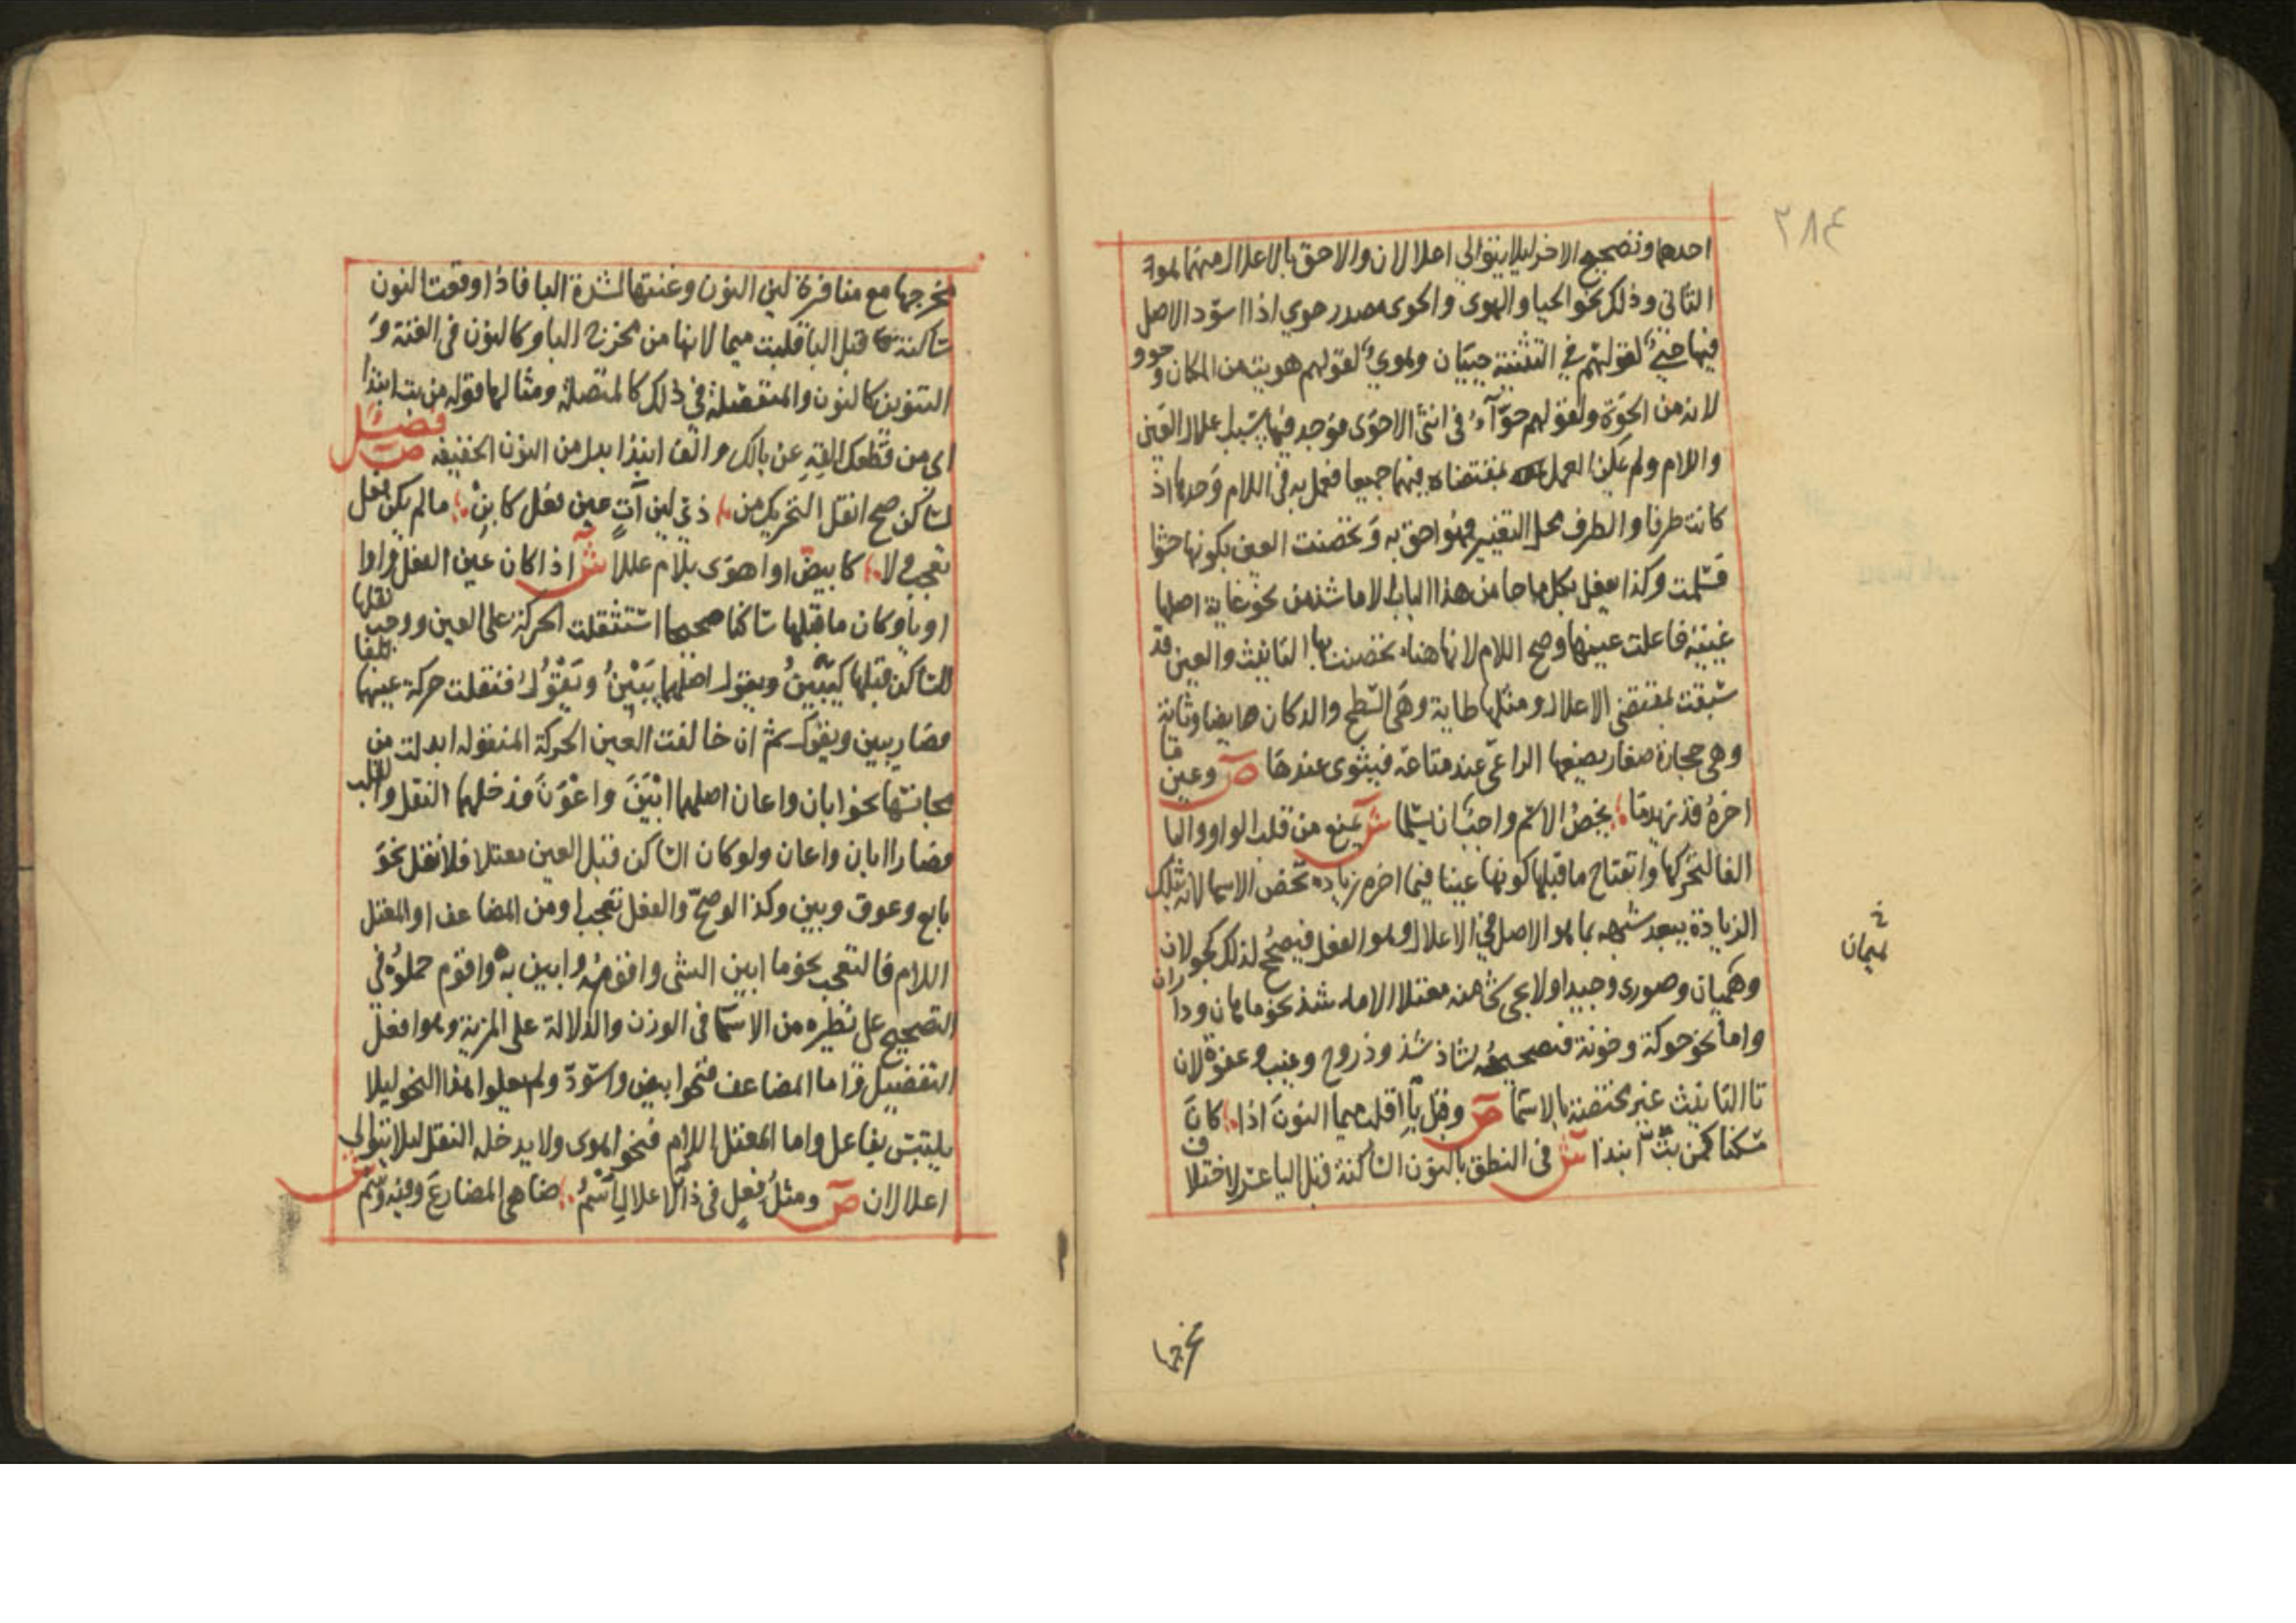 ٢٨٤
احدهما وتصحيح الاخر ليلا يتوالى اعلالان والاحق بالاعلال منهما هو
الثاني وذلك نحو الحيا والهوى والحوى مصدر حوي اذا اسوّد الاصل
فيها حيي لقولهم في التثنية حييان وهوي لقولهم هويت من المكان وحوو
لانه من الحوة ولقولهم حوّآء في انثى الاحوى فوجد فيها سبب اعلال العين
واللام ولم يمكن العمل بمقتضاه فيهما جميعا فعمل به في اللام وحدها اذ
كانت طرفا والطرف محل التغيير فهو احق به وتحصنت العين بكونها حشوا
فسلمت وكذا يفعل بكل ما جا من هذا الباب الا ما شذ من نحو غاية اصلها
غيية فاعلت عينها وصح اللام لانها هناء تحصنت بها التانيث والعين قد
سبقت بمقتضى الاعلال ومثلها طاية وهي السطح والدكان ايضا وثاية
وهي حجارة صغار يضعها الراعي عند متاعه فيثوى عندها ص وعين ما
اخره قد زيد ما يخص الاسم واجب ان يسلما ش يمنع من قلب الواو واليا
الفا لتحركها وانفتاح ما قبلها كونها عينا فيما اخره زياده تخص الاسما لانه بتلك
الزيادة يبعد شبهه بما هو الاصل في الاعلال وهو الفعل فيصحح لذلك نحو جولان
وهيمان وصورى وحيدا ولا يجي شيا منه معتلا الا ما شذ نحو ماهان وداران
واما نحو حوكة وخونة فتصحيحه شاذ شذوذ روح وغيب وعفوة لان
تا التانيث غير مختصة بالاسما ص وقبل با اقلب ميما النون اذا كان
مسكنا كمن بت انبذا ش في النطق بالنون الساكنة قبل البا عسر لاختلاف
هيمان
مخرجها
مخرجها مع منافرة لين النون وغنتها لشدة البا فاذا وقعت النون
ساكنة قبل البا قلبت ميما لانها من مخرج البا وكالنون في الغنة و
التنوين كالنون والمنفصلة في ذلك كالمتصلة ومثالها قوله من بت انبذا
اى من قطعك القه عن بالك والف انبذا بدل من النون الخفيفه فصل ص
لساكن صح انقل التحريك من ذي لين آت عين فعل كابن ما لم يكن فعل
تعجب ولا كابيض او اهوى بلام عللا ش اذا كان عين الفعل واوا
او ياء وكان ما قبلها ساكنا صحيحا استثقلت الحركة على العين ووجب نقلها
للساكن قبلها كيبين ويقول اصلهما يبين ويقول فنقلت حركة عينهما
فصار يبين ويقول ثم ان خالفت العين الحركة المنقوله ابدلت من
مجانسها نحو ابان واعان اصلهما ابين واعون فدخلهما النقل والقلب
فصارا ابان واعان ولو كان الساكن قبل العين معتلا فلا نقل نحو
بايع وعوق وبين وكذا لو صح والفعل تعجب او من المضاعف او المعتل
اللام فالتعجب نحو ما ابين الشى واقومه وابين به واقوم حملوه في
التصحيح على نظيره من الاسما في الوزن والدلالة على المزية وهو افعل
التفضيل واما المضاعف فنحو ابيض واسود ولم يعلوا هذا النحو ليلا
يلتبس بفاعل واما المعتل اللام فنحو اهوى ولا يدخله النقل ليلا يتوالى
اعلالان ص ومثل فعل في ذا الاعلال اسم ضاهى المضارع وفيه وسم ش